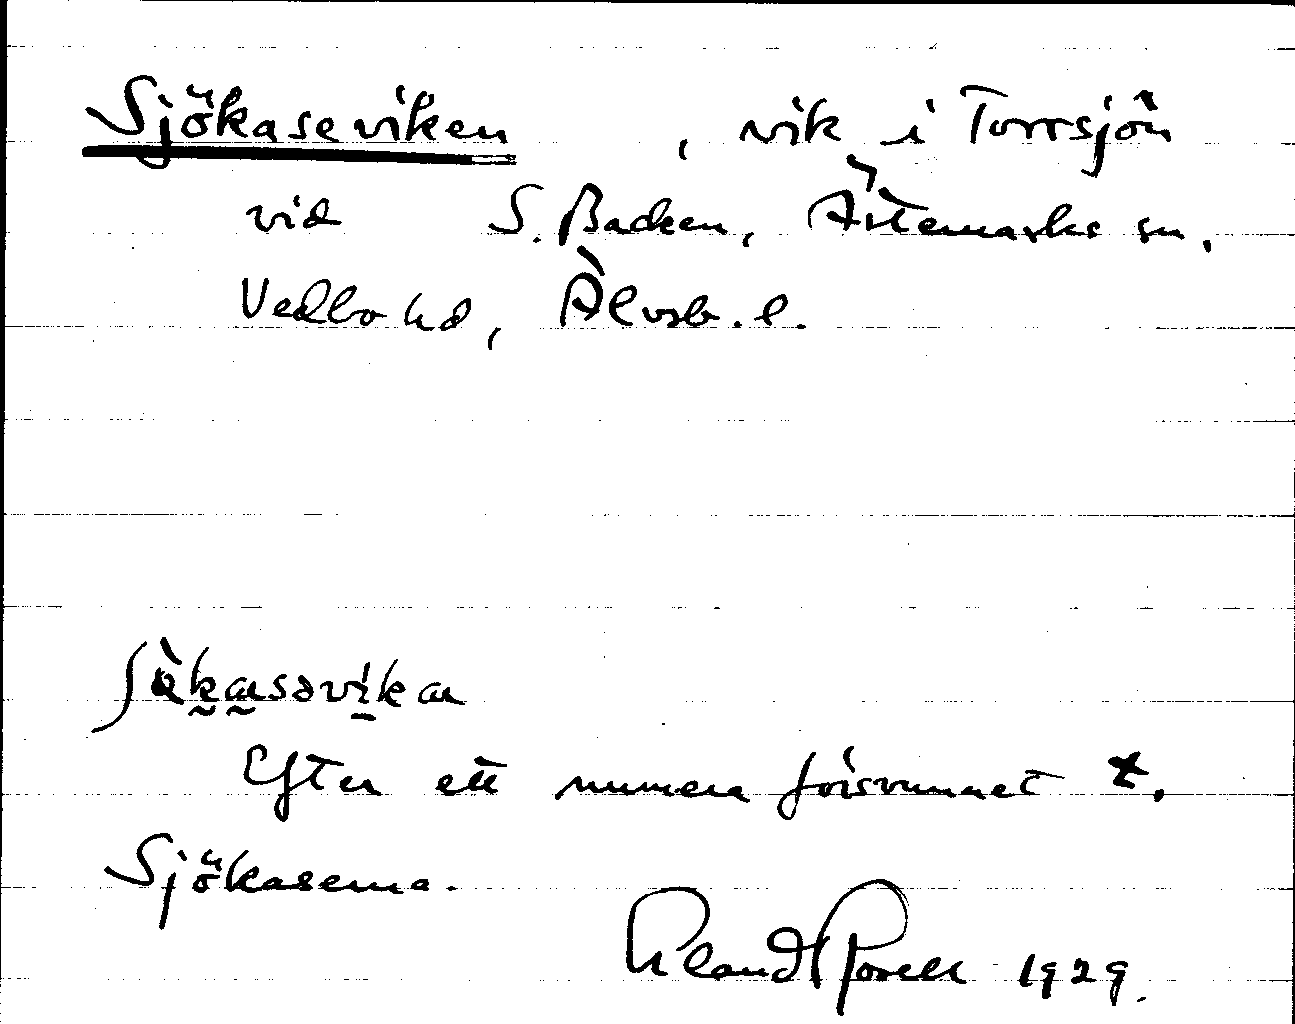 Sjökaseviken, vik i Torrsjön
vid S. Backen, Ärtemarks sn,
Vedbo hd, Älvsb. l.
ʃø̀kasəvikα
Efter ett numera försvunnet t.
Sjökaserna.
Erland Rosell 1929.